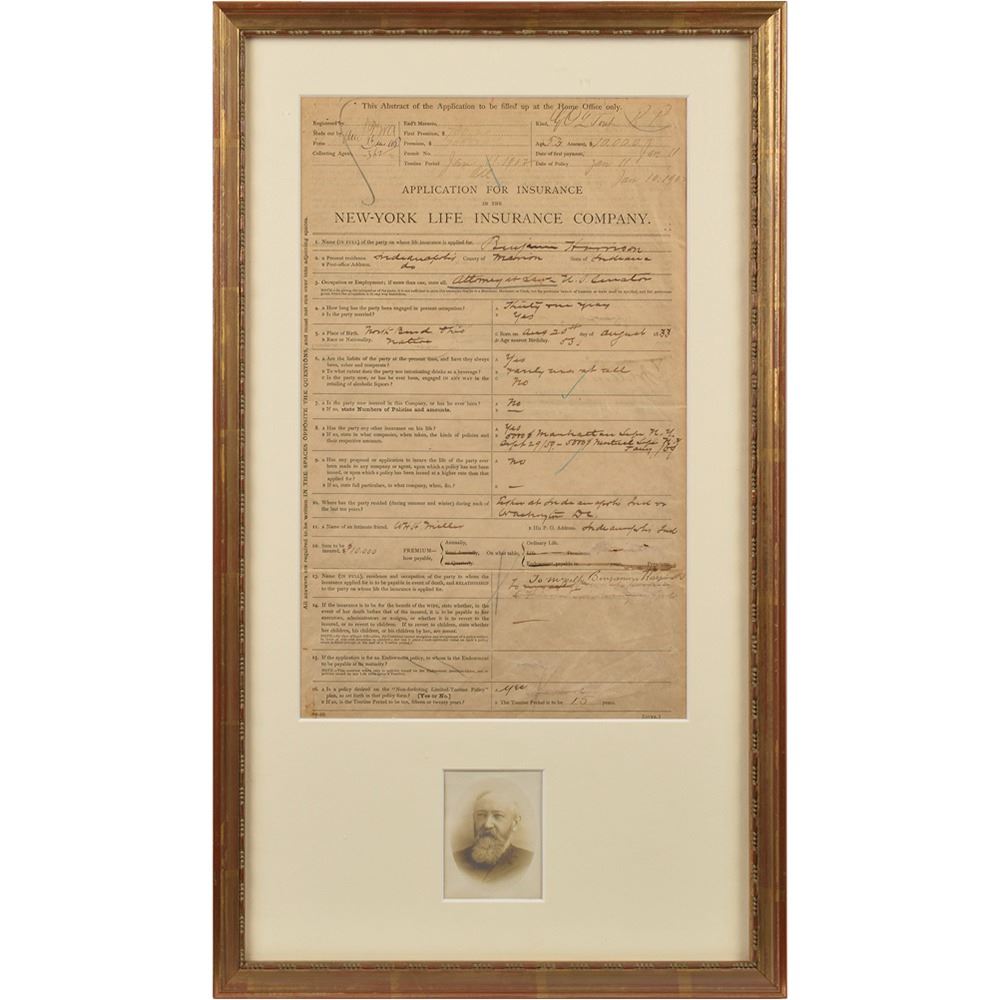 This Abstract of the Application to be filled up at the Home Office only.
Registered by
Made out by
From
Collecting Agen
End't Memoran.
First Premium, $
Premium, $
Permit No.
Tontine Period Jan 11 1902
Kind,
Age, 53 Amount, $ 10,000
Date of first payment, Jan 11
Date of Policy Jan 11
Jan 10, 1902
APPLICATION FOR INSURANCE
IN THE
NEW-YORK LIFE INSURANCE COMPANY.
All answers are required to be written IN THE SPACES OPPOSITE THE QUESTIONS, and must not run over into adjoining spaces.
1. Name (IN FULL) of the party on whose life insurance is applied for. Benjamin Harrison
2. A Present residence. Indianapolis County of Marion State of Indiana
B Post-office Address. do
3. Occupation or Employment; if more than one, state all. Attorney at Law U. S. Senator
4. A How long has the party been engaged in present occupation? A Thirty one years
B Is the party married? B Yes
5. A Place of Birth. North Bend Ohio C Born on Aug 20th day of August 1833
B Race or Nationality. Native D Age nearest Birthday. 53
6. A Are the habits of the party at the present time, and have they always been, sober and temperate? A Yes
B To what extent does the party use intoxicating drinks as a beverage? B Hardly ever at all
C Is the party now, or has he ever been, engaged IN ANY WAY in the retailing of alcoholic liquors? C No
7. A Is the party now insured in this Company, or has he ever been? A No
B If so, state Numbers of Policies and amounts. B —
8. A Has the party any other insurance on his life? A Yes
B If so, state in what companies, when taken, the kinds of policies and their respective amounts. B 5000$ Manhattan Life N. Y.
Sept 29/59 - 5000$ Mutual Life N. Y.
9. A Has any proposal or application to insure the life of the party ever been made to any company or agent, upon which a policy has not been issued, or upon which a policy has been issued at a higher rate than that applied for? A No
B If so, state full particulars, to what company, when, &c.? B —
10. Where has the party resided (during summer and winter) during each of the last ten years? Either at Indianapolis Ind or
Washington Dc.
11. A Name of an intimate friend. W H H Miller B His P. O. Address. Indianapolis Ind
12. Sum to be insured, $ 10,000 PREMIUM— how payable, Annually, Semi-Annually, or Quarterly. On what table, Ordinary Life. Life Premiums. Endowment, payable in
13. Name (IN FULL), residence and occupation of the party to whom the insurance applied for is to be payable in event of death, and RELATIONSHIP to the party on whose life the insurance is applied. To myself Benjamin Harrison
14. If the insurance is to be for the benefit of the WIFE, state whether, in the event of her death before that of the insured, it is to be payable to her executors, administrators or assigns, or whether it is to revert to the insured, or to revert to children. If to revert to children, state whether her children, his children, or his children by her, are meant. —
15. If the application is for an Endowment policy, to whom is the Endowment to be payable at its maturity?
16. A Is a policy desired on the "Non-forfeiting Limited-Tontine Policy" plan, as set forth in that policy form? [YES OR NO.] A Yes
B If so, is the Tontine Period to be ten, fifteen or twenty years? B The Tontine Period is to be 15 years.
[OVER.]